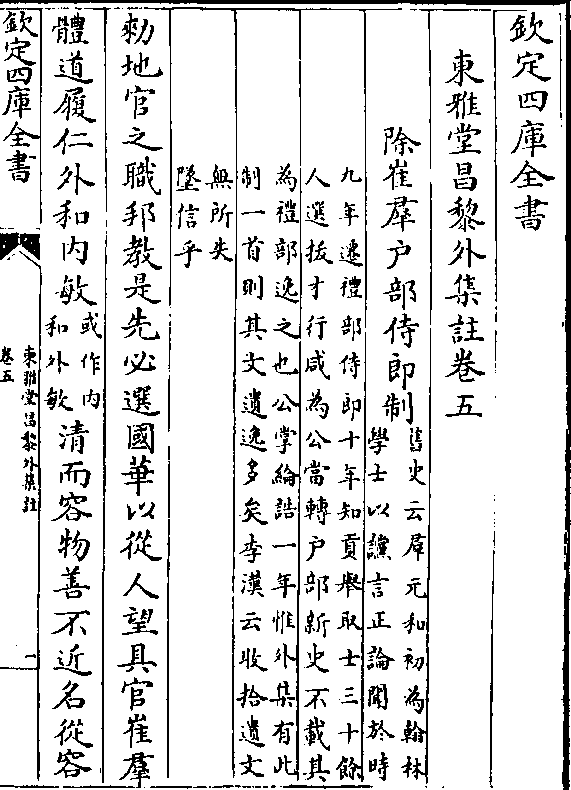 欽定四庫全書
東雅堂昌黎外集註卷五
除崔羣户部侍郎制
舊史云羣元和初為翰林
學士以讜言正論聞於時
九年遷禮部侍郎十年知貢舉取士三十餘
人選拔才行咸為公當轉户部新史不載其
為禮部逸之也公掌綸誥一年惟外集有此
制一首則其文遺逸多矣李漢云收拾遺文
無所失
墜信乎
勅地官之職邦教是先必選國華以從人望具官崔羣
體道履仁外和内敏或作内和外敏清而容物善不近名從容
欽定四庫全書
東雅堂昌黎外集註
卷五
一